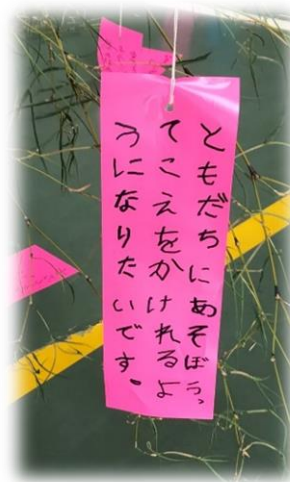 ともだちにあそぼうっ
てこえをかけれるよ
うになりたいです。